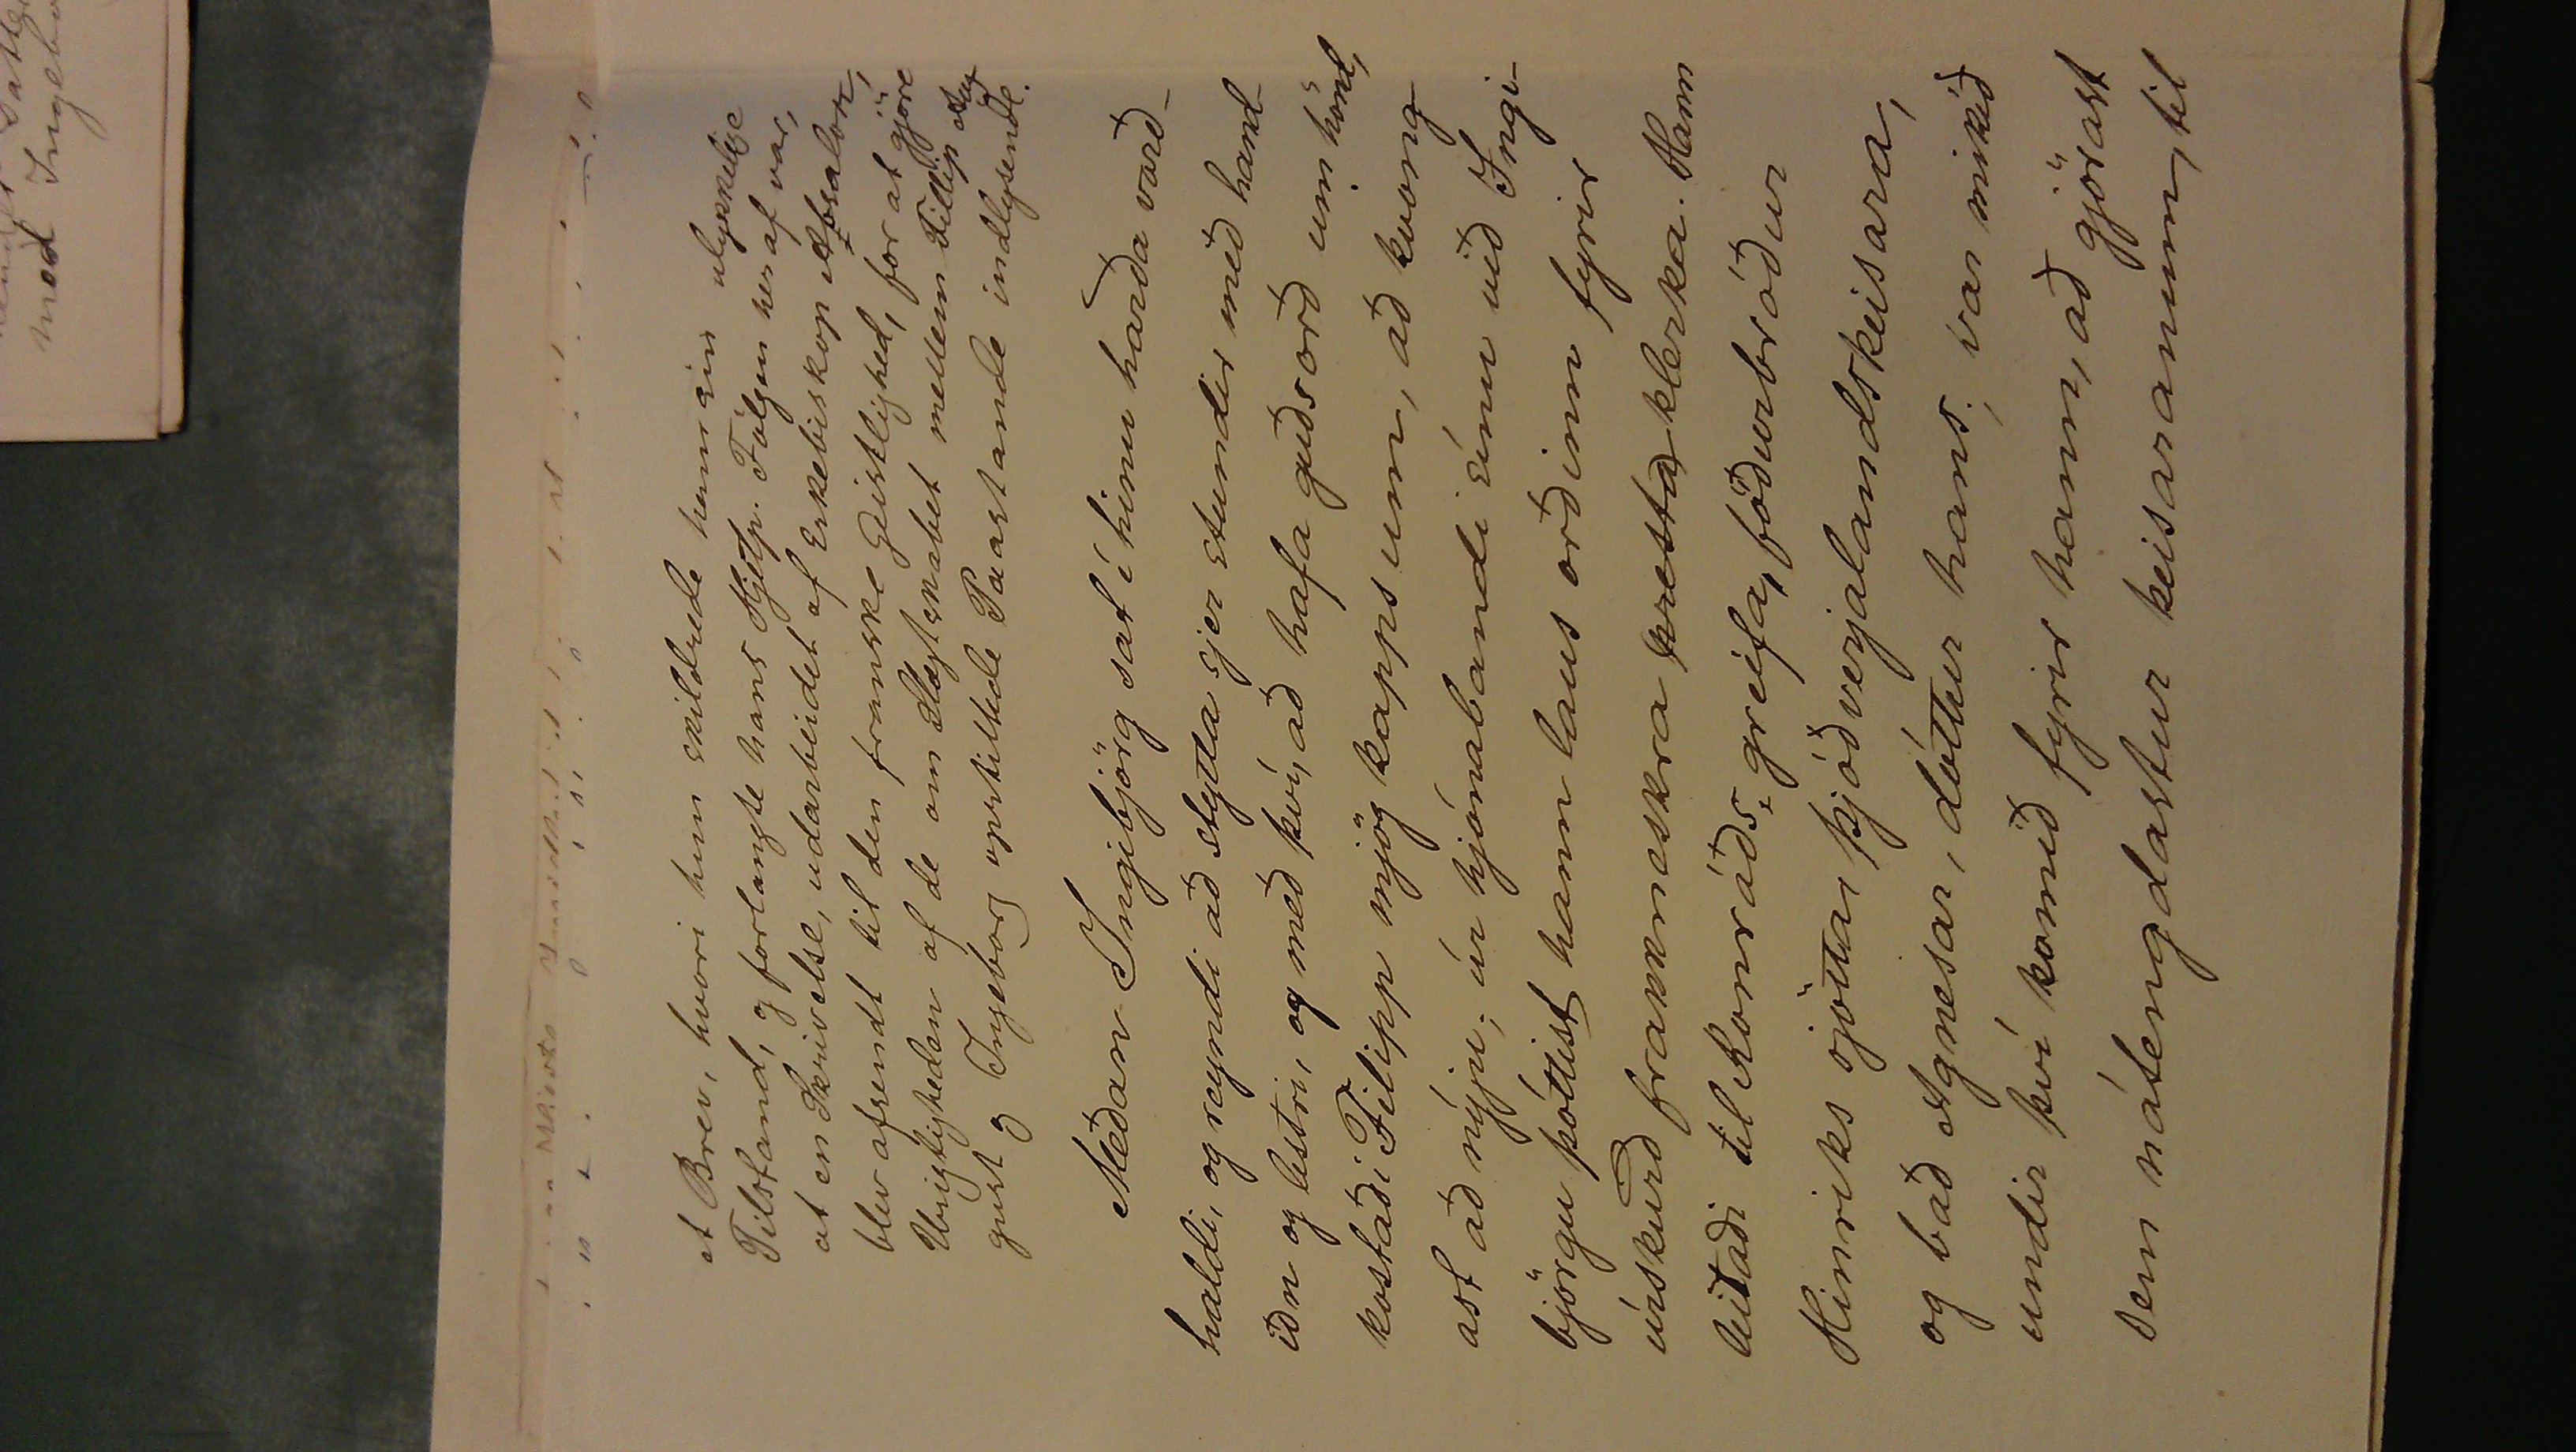 med Ingebo
et Brev, hvori hun skildrede hum sin ulykkelige
Tilstand, og forlangte hans Hjelp. Følgen her af var,
at en Skrivelse, udarbeidet af Erkebiskop Absalon,
blev afsendt til den franske Geistlighed, for at gjöre
Urigtigheden af de om Slægtskabet mellem Fillip Aug
gust og Ingeborg opstillede Paastande indlysende.
Meðan Ingibjörg sat í hinu harða varð-
haldi, og reyndi að stytta sjer stundir með hand-
iðn og lestri, og með því, að hafa guðsorð um hönd,
kostaði Filipp mjög kapps um, að kvong-
ast að nýju; úr hjónabandi sínu við Ingi-
björgu þóttist hann laus orðinn fyrir
úrskurð frakkneskra presta klerka. Hann
leitaði til Konráðs greifa, föðurbróður
Hinriks sjötta, þjóðverjalandskeisara,
og bað Agnesar, dóttur hans; var mikið
undir því komið fyrir hann, að gjörast
sem nátengdastur keisaranum, til